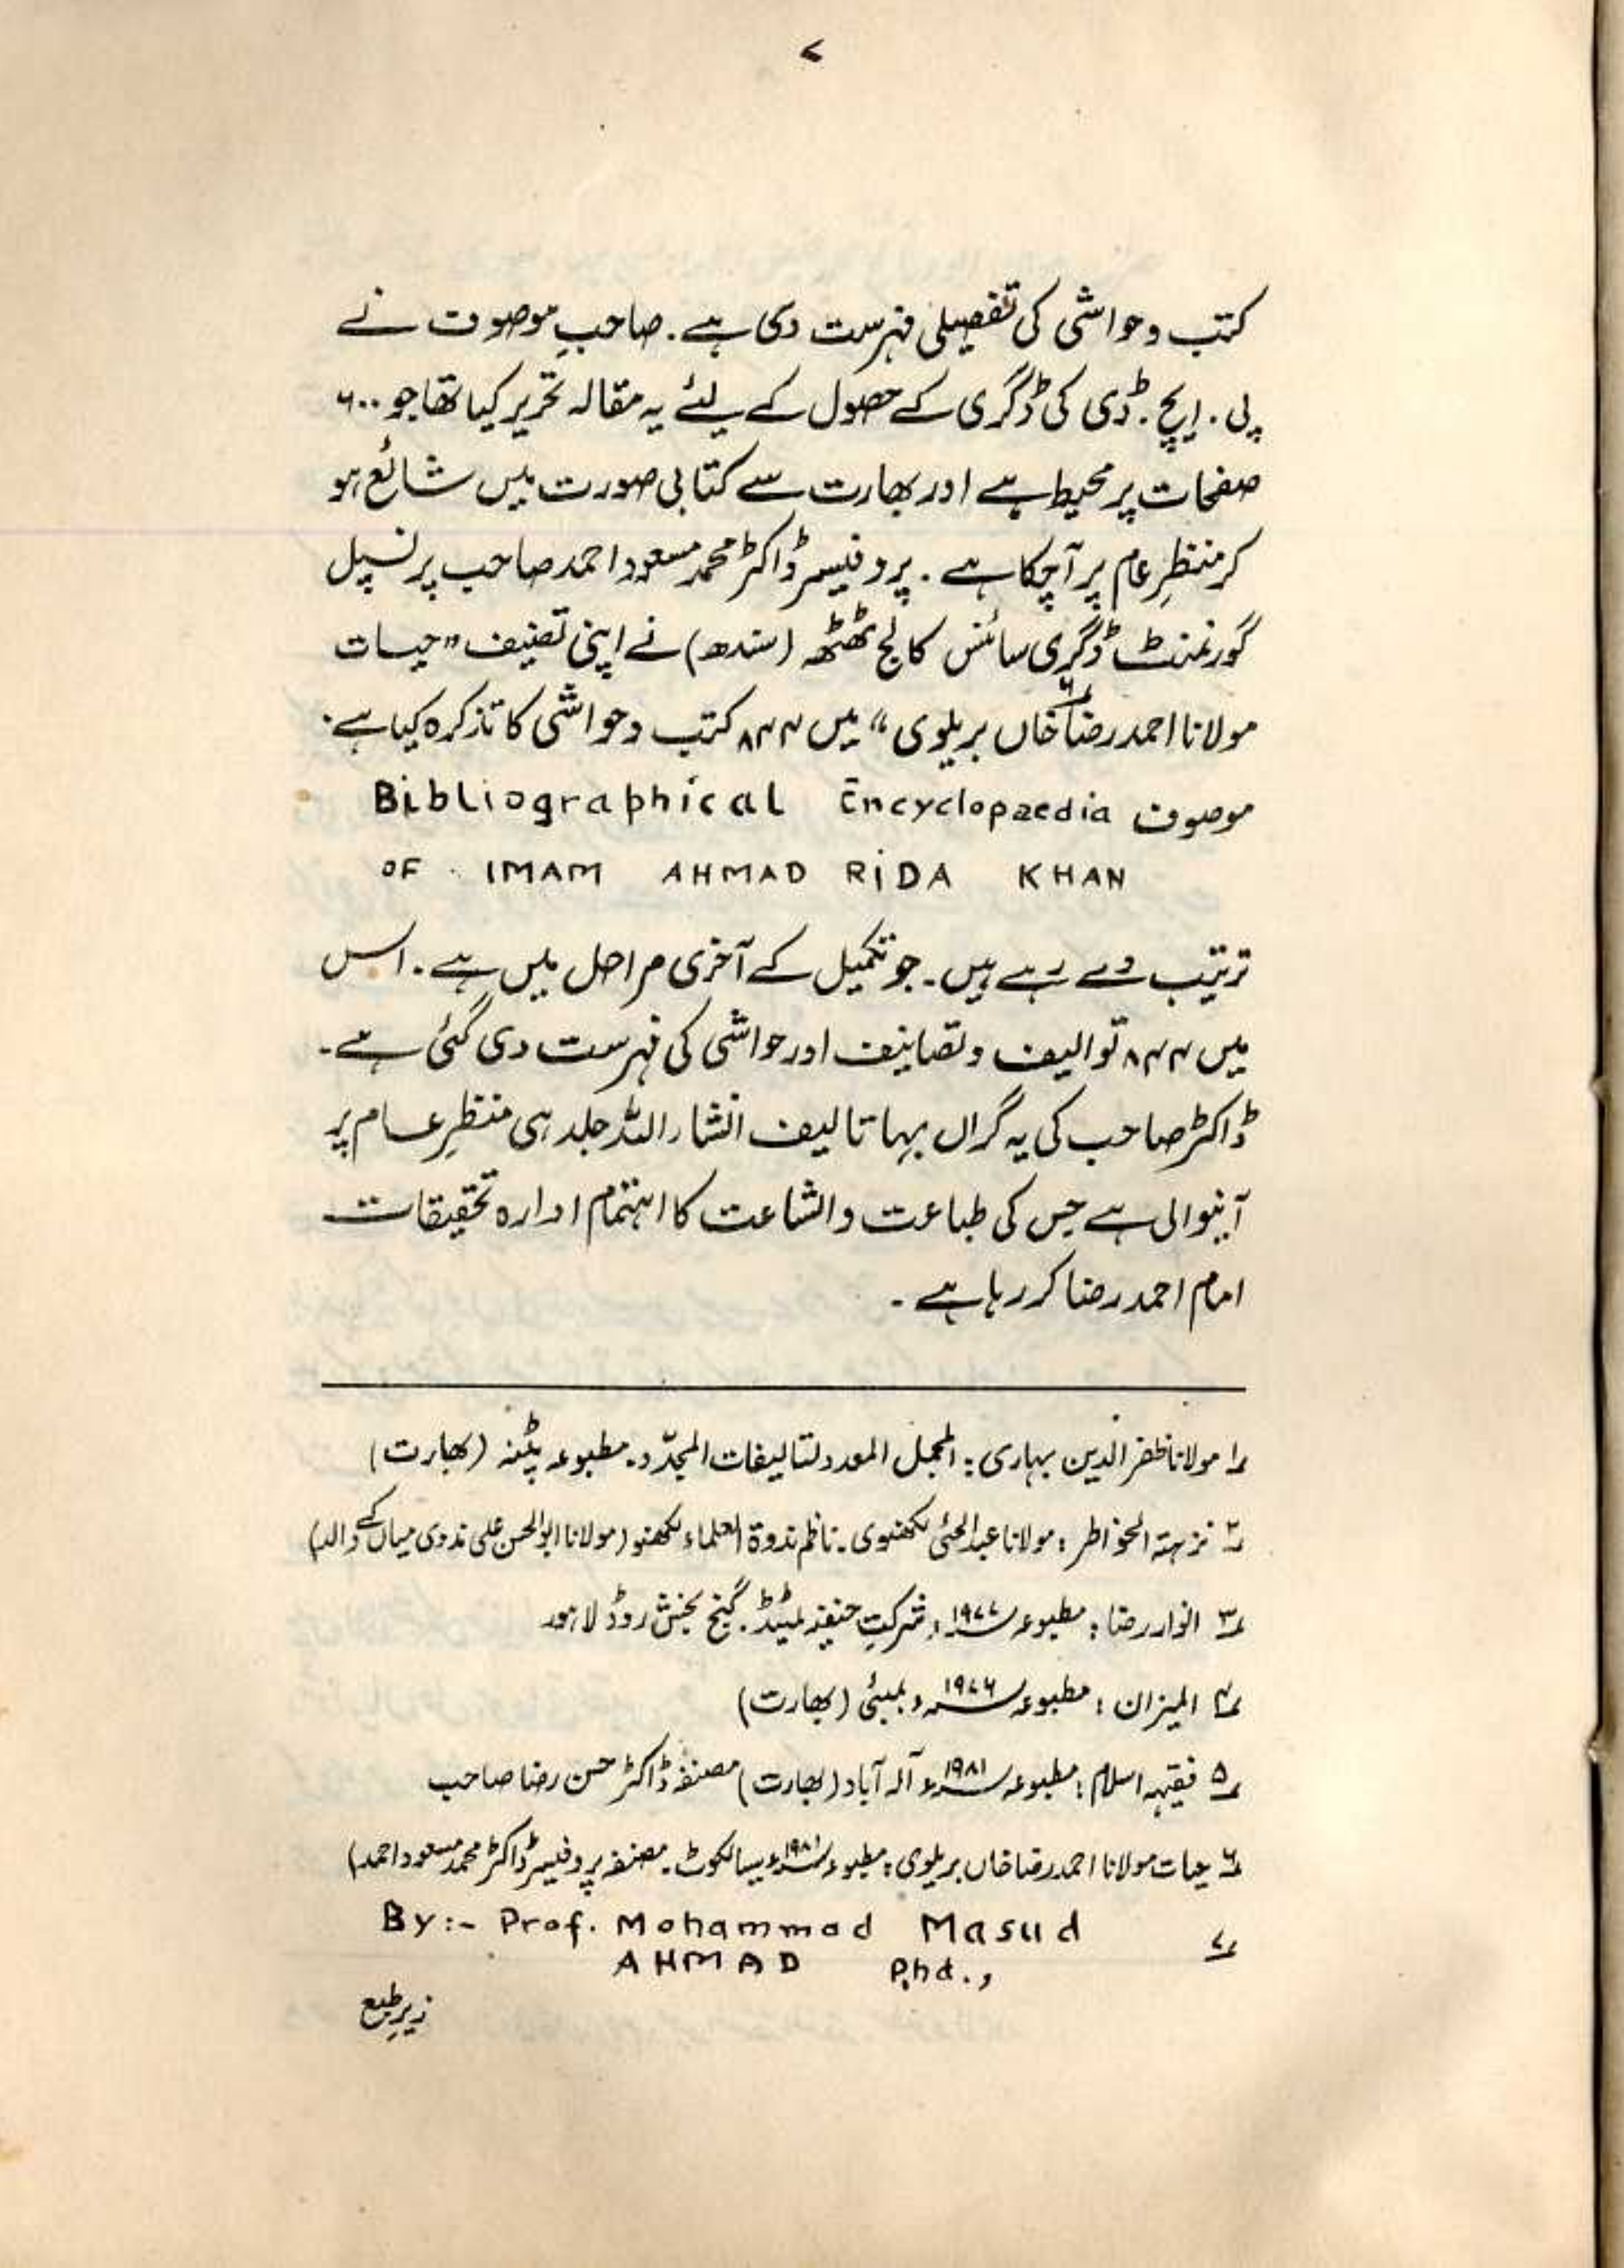 ۷
کتب و حواشی کی تفصیلی فہرست دی ہے۔ صاحبِ موصوف نے
پی۔ ایچ۔ ڈی کی ڈگری کے حصول کے لئے یہ مقالہ تحریر کیا تھا جو ۶۰۰
صفحات پر محیط ہے اور بھارت سے کتابی صورت میں شائع ہو
کر منظرِ عام پر آچکا ہے۔ پروفیسر ڈاکٹر محمد مسعود احمد صاحب پرنسپل
گورنمنٹ ڈگری سائنس کالج ٹھٹھہ (سندھ) نے اپنی تصنیف "حیات
مولانا احمد رضا خاں بریلوی" ۶ میں ۸۴۴ کتب و حواشی کا تذکرہ کیا ہے۔
موصوف Bibliographical Encyclopaedia
OF IMAM AHMAD RiDA KHAN
ترتیب دے رہے ہیں۔ جو تکمیل کے آخری مراحل میں ہے۔ اس
میں ۸۴۴ توالیف و تصانیف اور حواشی کی فہرست دی گئی ہے۔
ڈاکٹر صاحب کی یہ گراں بہا تالیف انشاء اللہ جلد ہی منظرِ عام پر
آنیوالی ہے جس کی طباعت و اشاعت کا اہتمام ادارہ تحقیقات
امام احمد رضا کر رہا ہے۔
۱ مولانا ظفر الدین بہاری: المجمل المعدد لتالیفات المجدّد۔ مطبوعہ پٹنہ (بھارت)
۲ نزہتہ الخواطر: مولانا عبدالحئی لکھنوی۔ ناظم ندوۃ العلماء لکھنو (مولانا ابوالحسن علی ندوی میاں کے والد)
۳ انوار رضا: مطبوعہ ۱۹۷۷ء، شرکتِ حنفیہ لمیٹڈ۔ گنج بخش روڈ لاہور
۴ المیزان: مطبوعہ ۱۹۷۶ء، بمبئی (بھارت)
۵ فقیہہ اسلام: مطبوعہ ۱۹۸۱ء آلہ آباد (بھارت) مصنفہ ڈاکٹر حسن رضا صاحب
۶ حیات مولانا احمد رضا خاں بریلوی: مطبوعہ ۱۹۸۱ء سیالکوٹ۔ مصنفہ پروفیسر ڈاکٹر محمد مسعود احمد)
۷ By:- Prof. Mohammad Masud
AHMAD Phd.,
زیرِ طبع